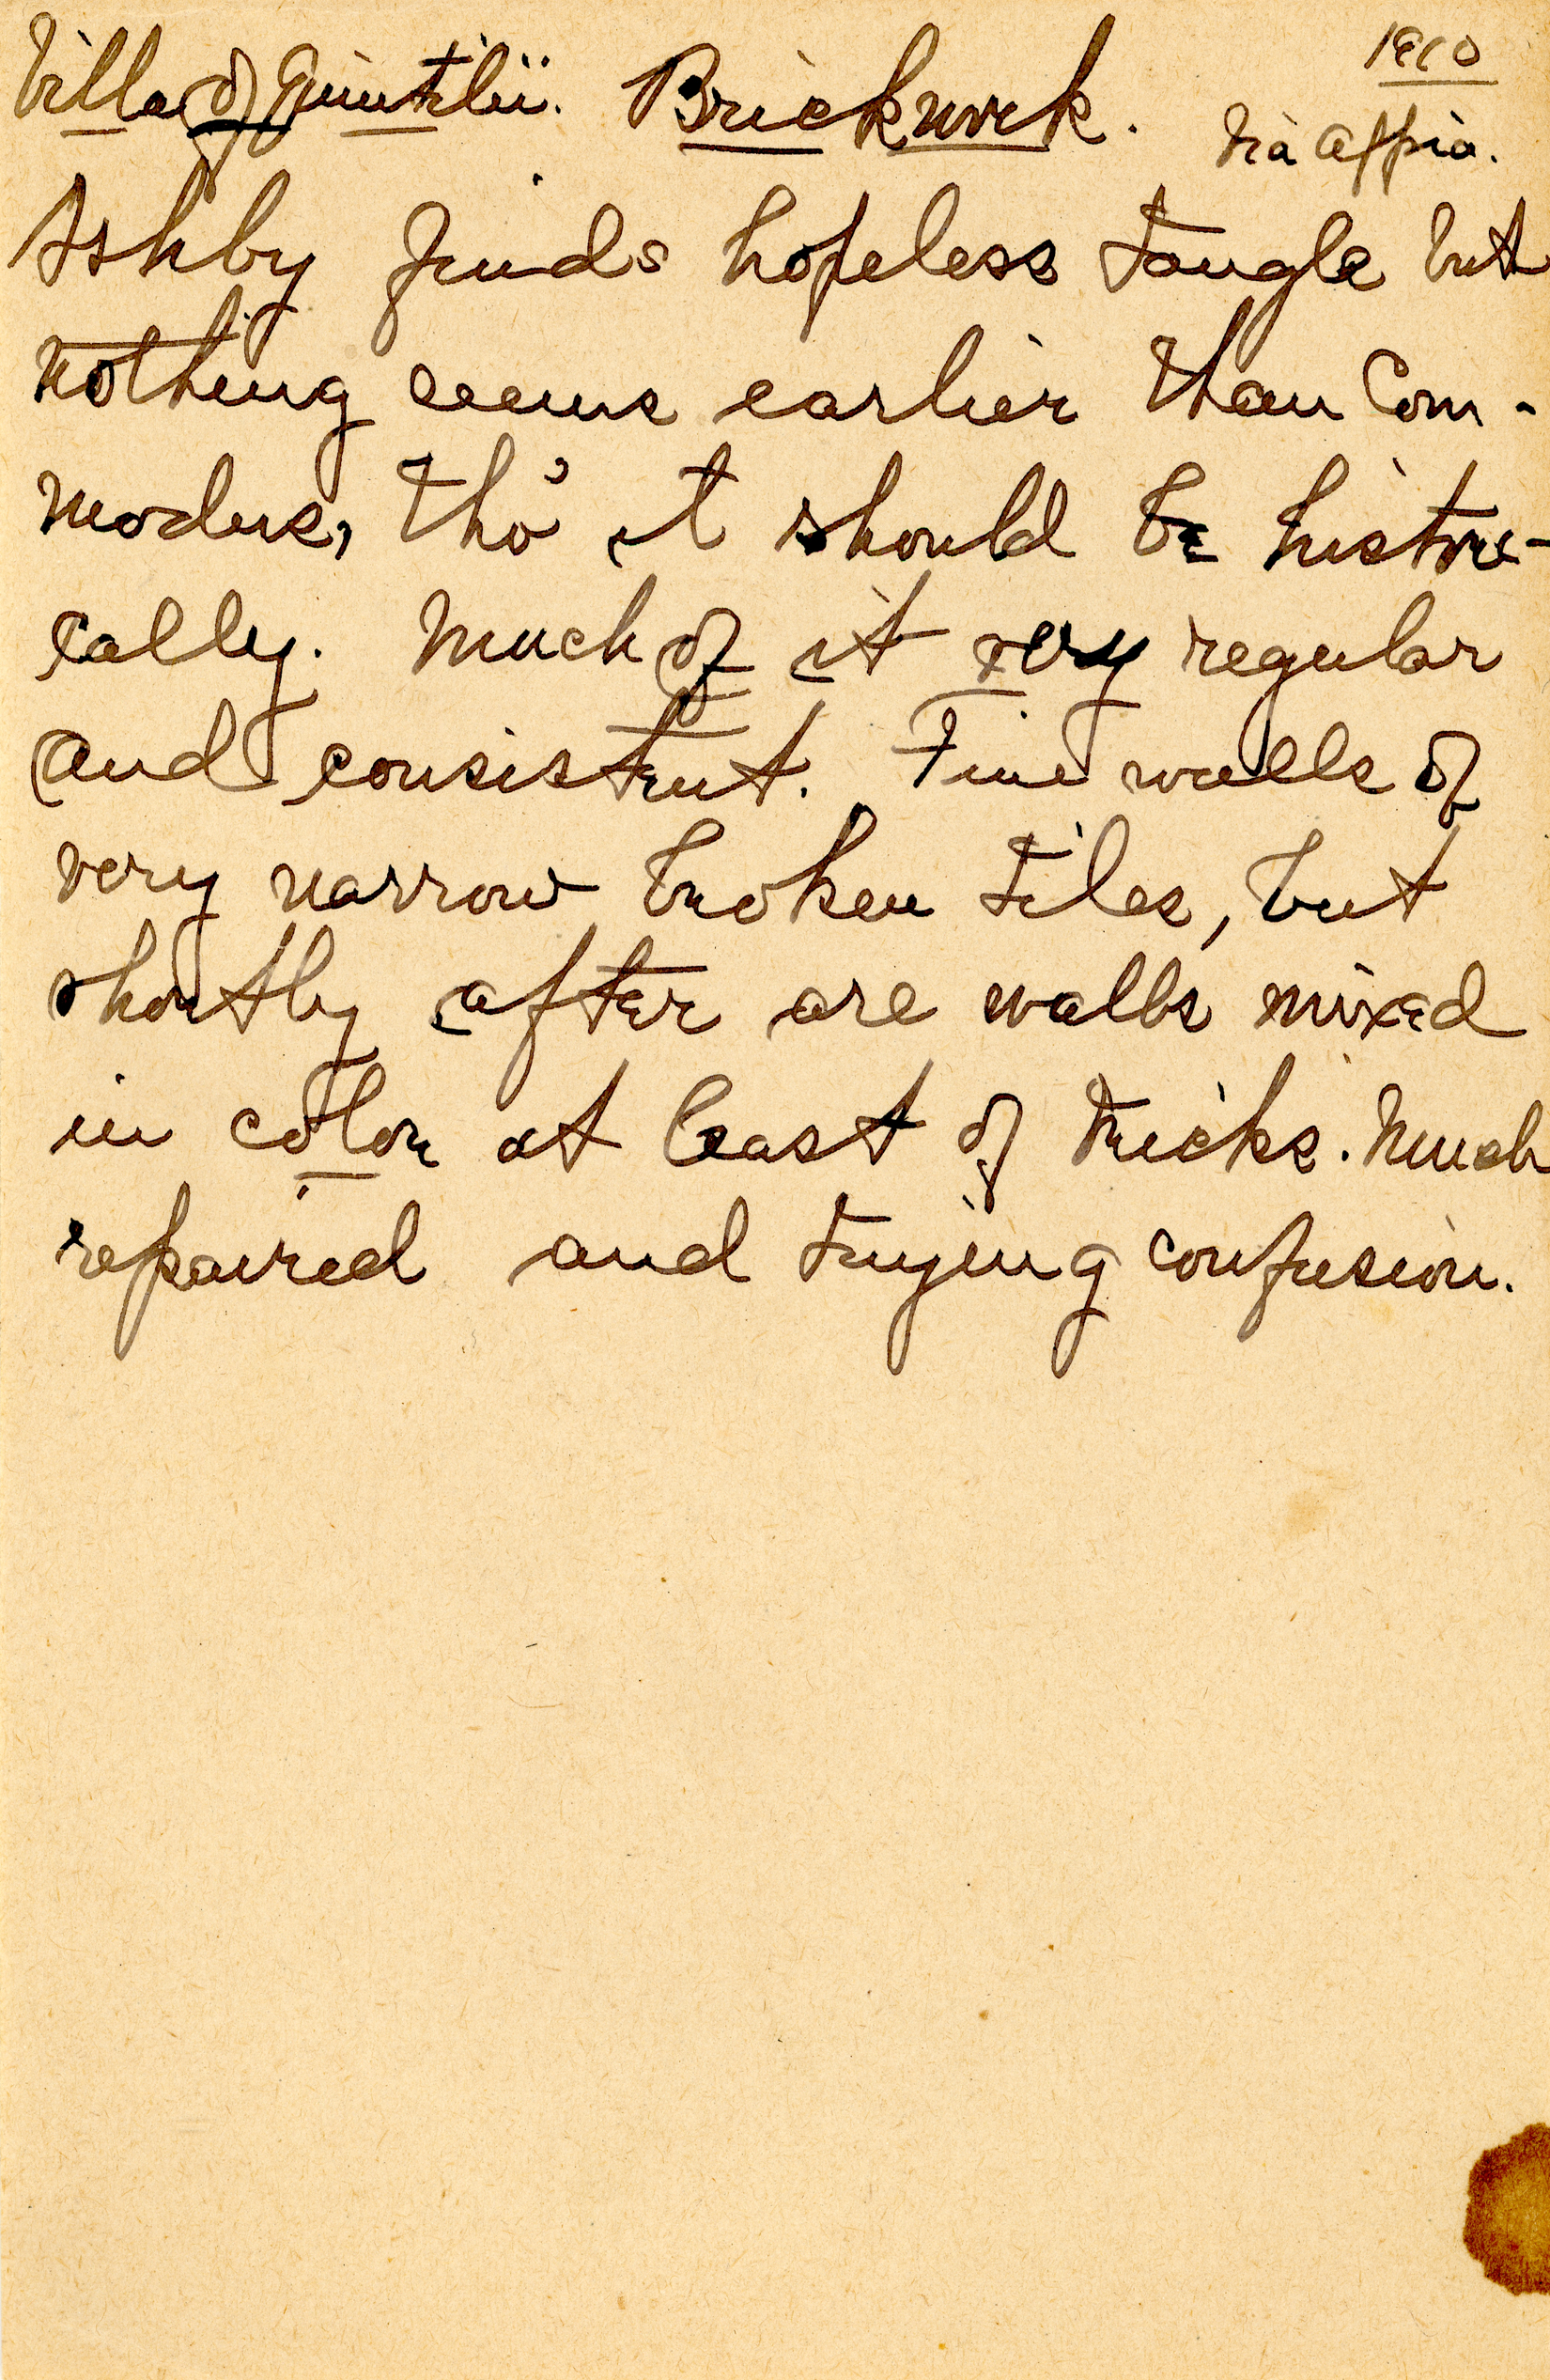 Villa of Quintilii. Brickwork. 1910
Via Appia.
Ashby finds hopeless tangle but
nothing seems earlier than Com-
modus, tho' it should be histori-
cally. Much of it very regular
and consistent. Fine walls of
very narrow broken tiles, but
shortly after are walls mixed
in color at least of bricks. Much
repaired and trying confusion.